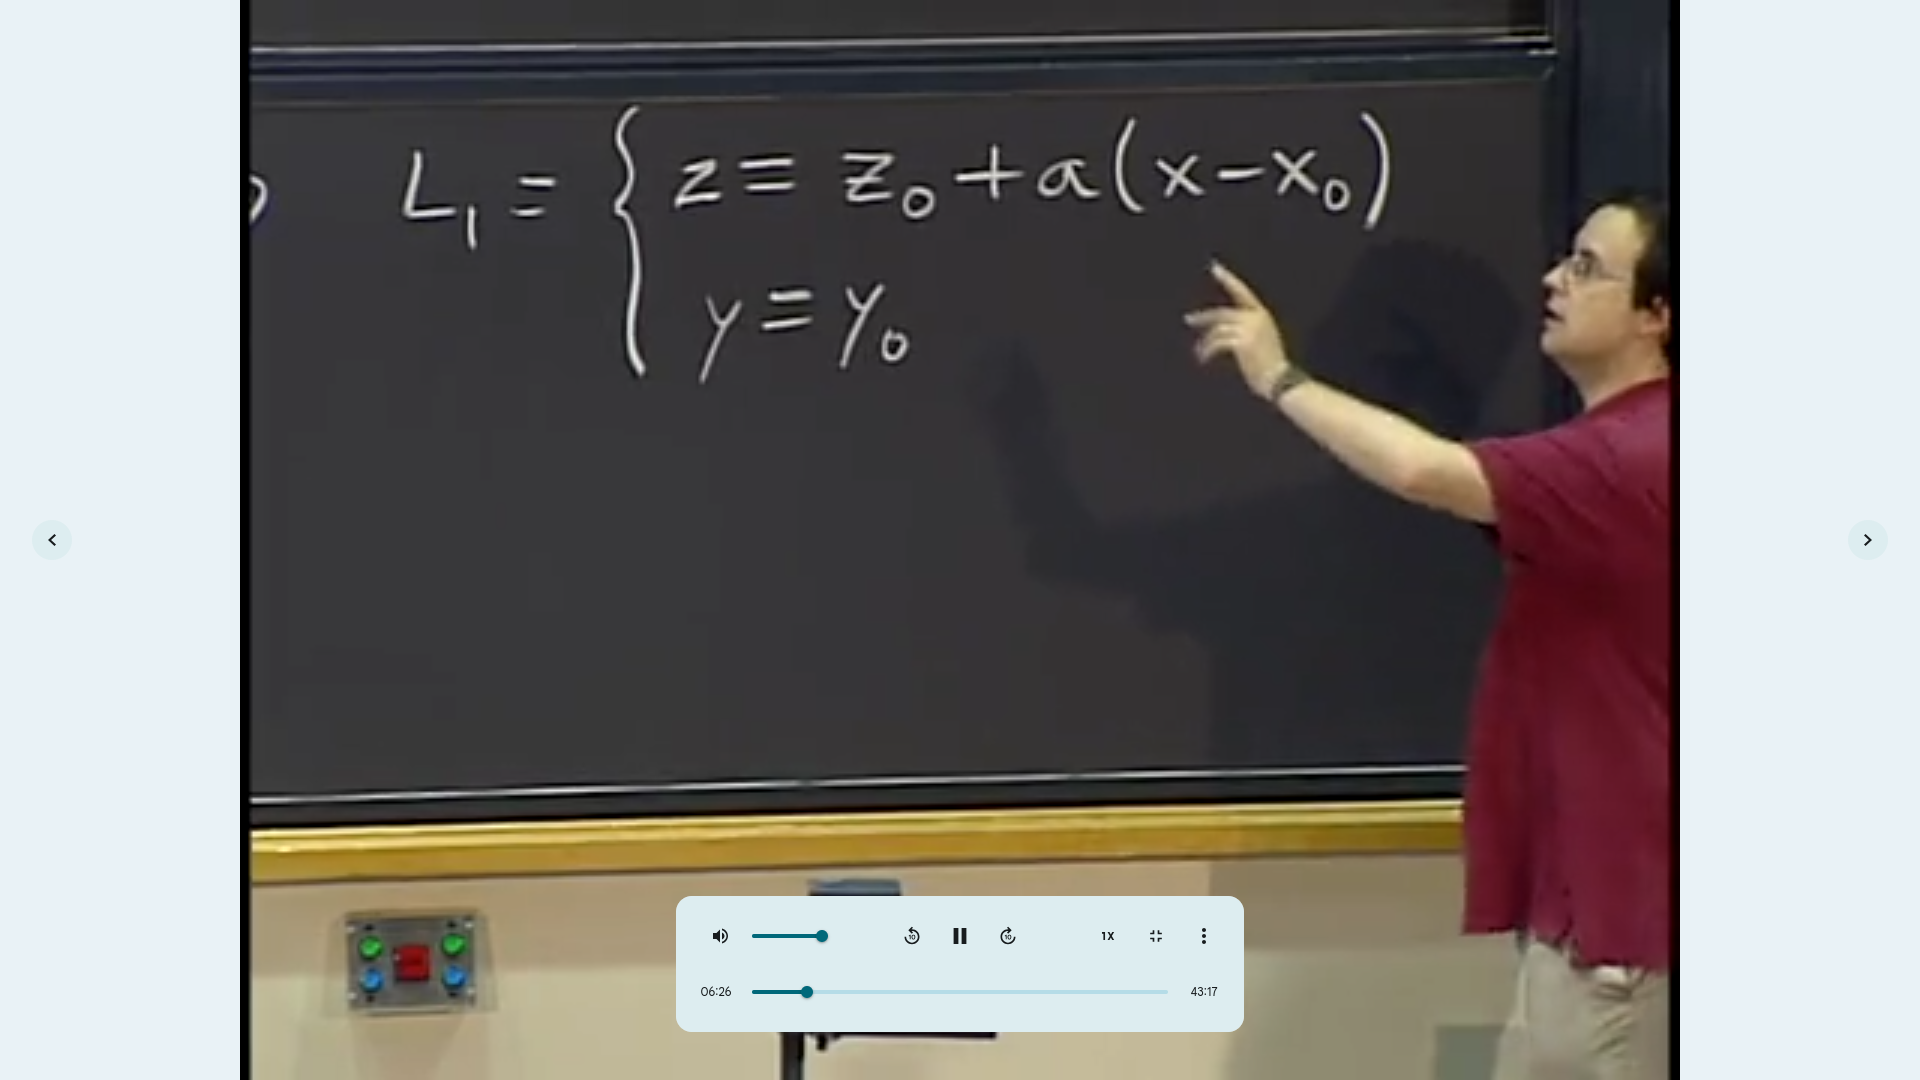 L₁ = { z = z₀ + a(x - x₀)
y = y₀
1X
06:26
43:17